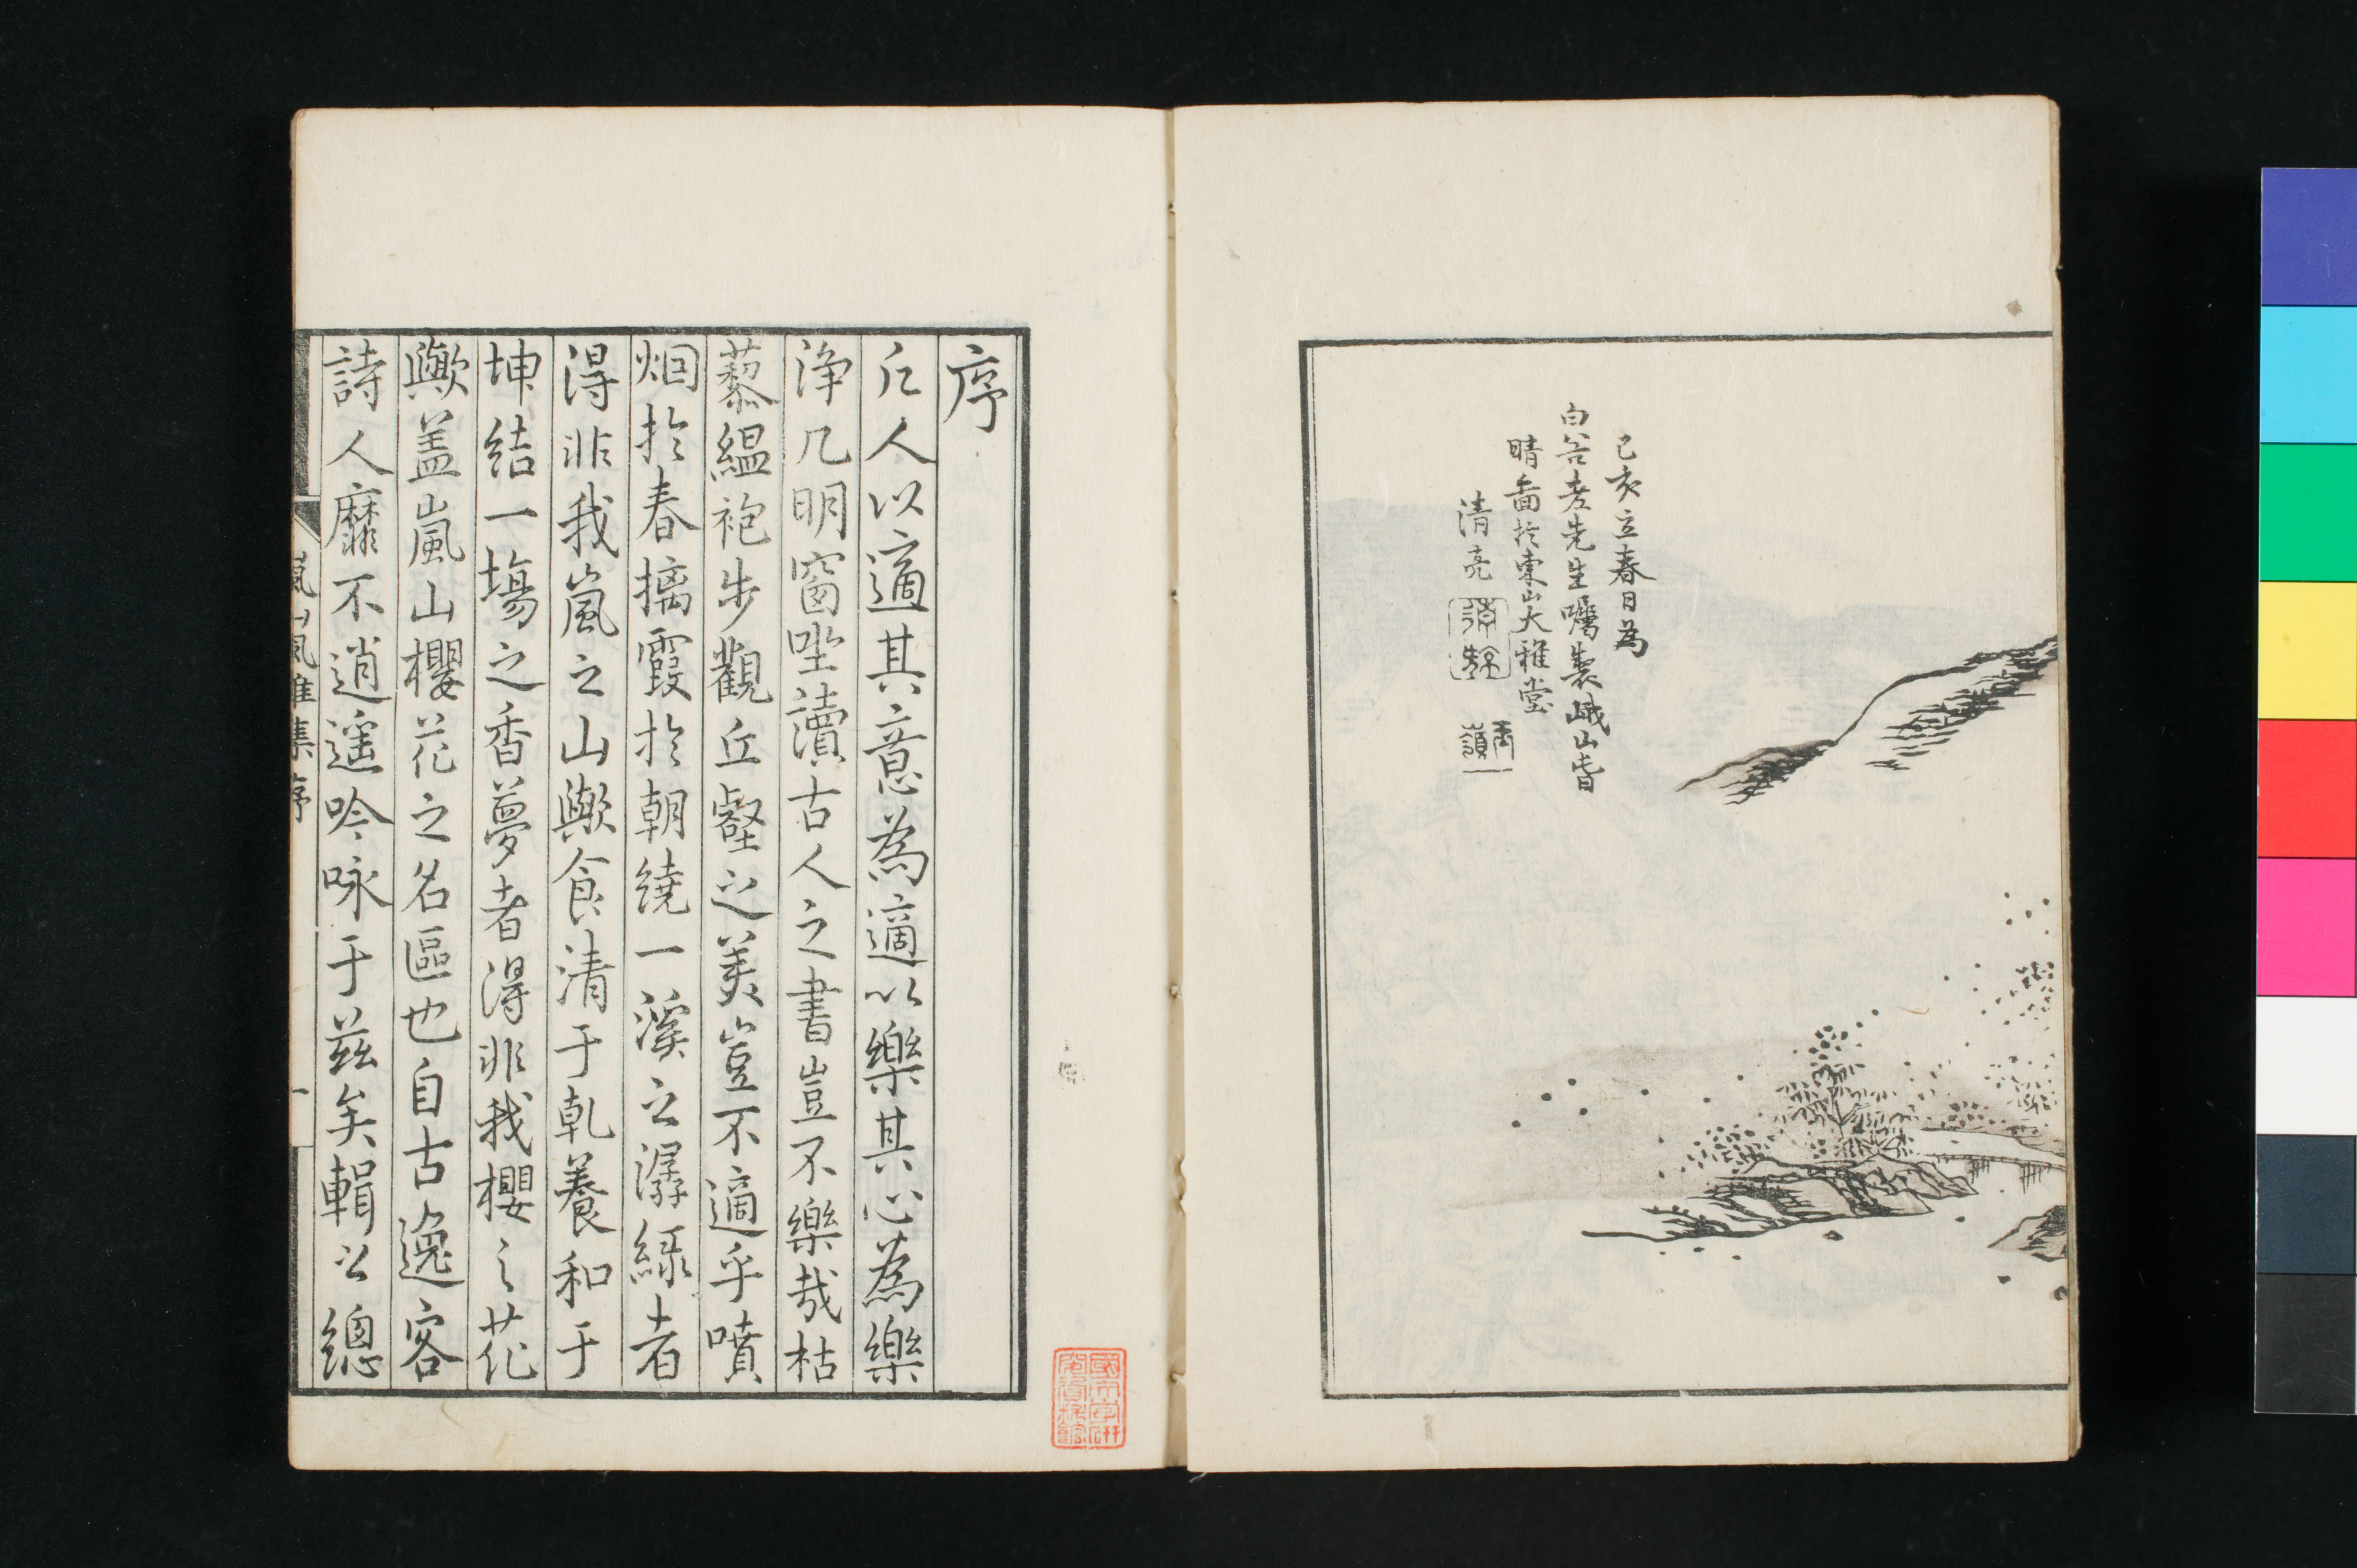 己亥立春日為
白谷老先生囑製峨山春
晴畫於東山大雅堂
清亮
序
凡人以適其意為適以樂其心為樂
浄几明窗唑讀古人之書豈不樂哉枯
藜縕袍步觀丘壑之美豈不適乎噴
烟於春摛霞於朝繞一溪之潺緑者
得非我嵐之山歟含清于乾養和于
坤結一場之香夢者得非我櫻之花
歟盖嵐山櫻花之名區也自古逸客
詩人靡不逍遥吟咏于茲矣輯公總
嵐山風雅集序
一